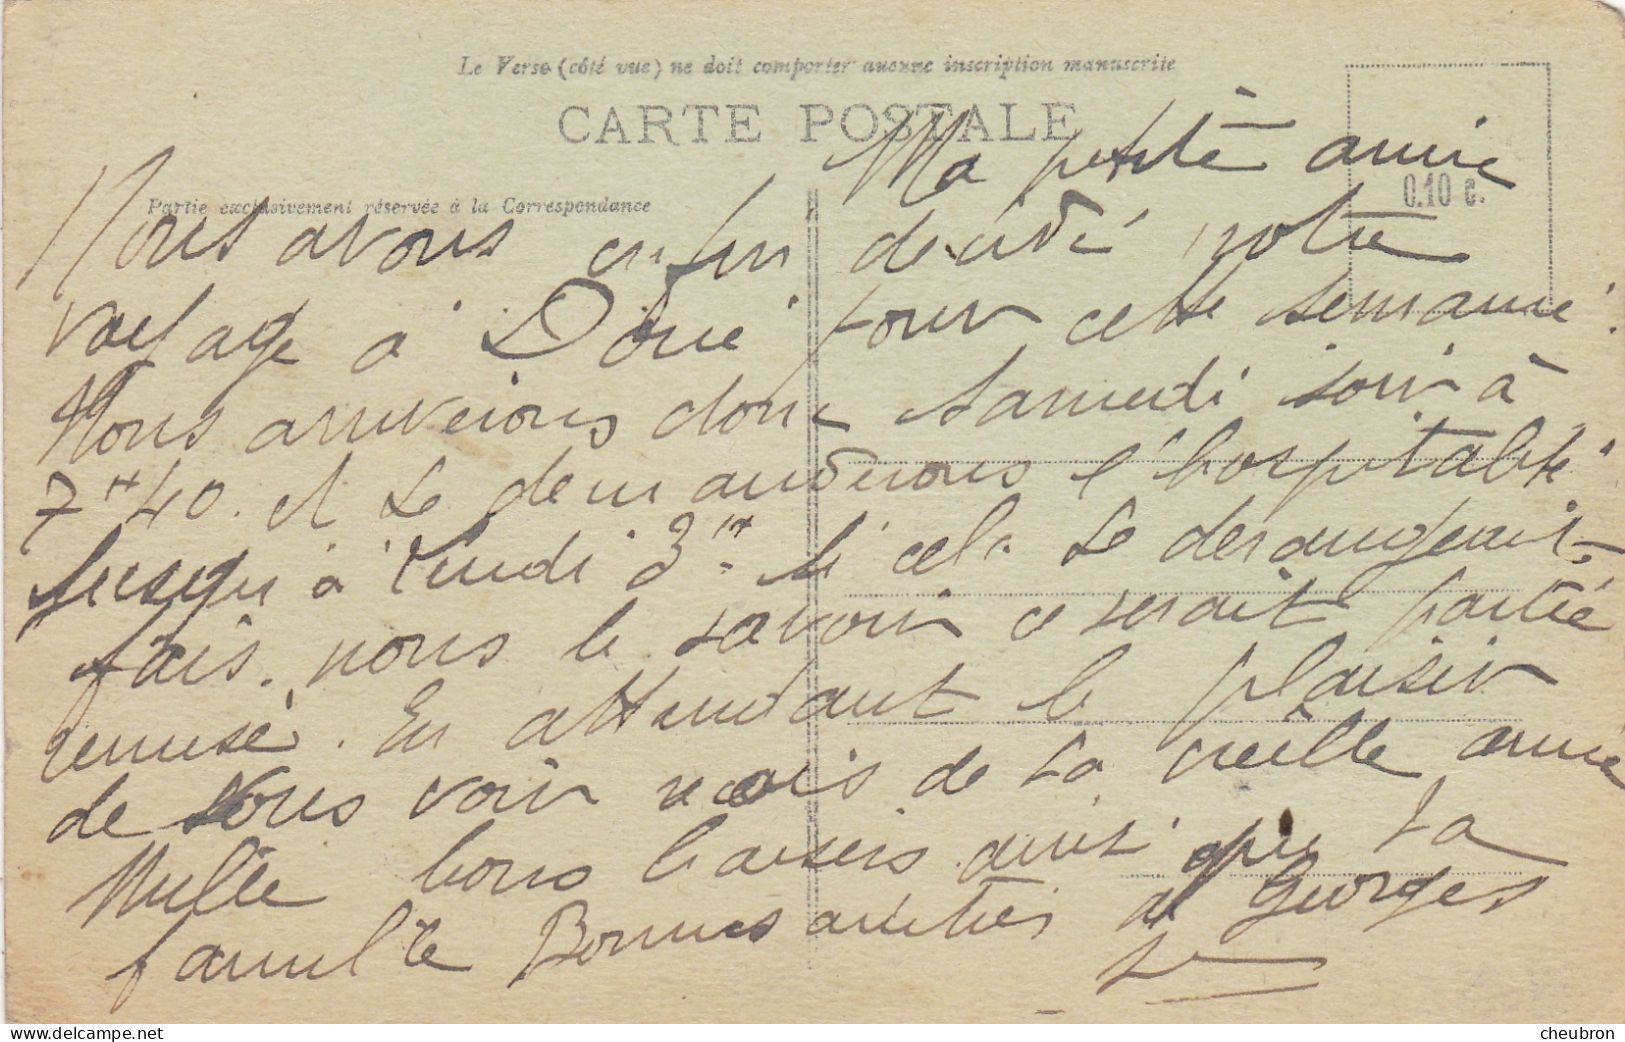 Le Verso (côté vue) ne doit comporter aucune inscription manuscrite
CARTE POSTALE
0.10 c.
Partie exclusivement réservée à la Correspondance
Ma petite amie
Nous avons enfin décidé notre
voyage à Doué pour cette semaine.
Nous arriverons donc samedi soir à
7H40. et te demanderons l'hospitalité
jusqu'à lundi 3H. Si cela te dérangeait,
fais nous le savoir ce serait partie
remise. En attendant le plaisir
de vous voir reçois de ta vieille amie
Mille bons baisers ainsi que ta
famille Bonnes amitiés de Georges
cheubron.com